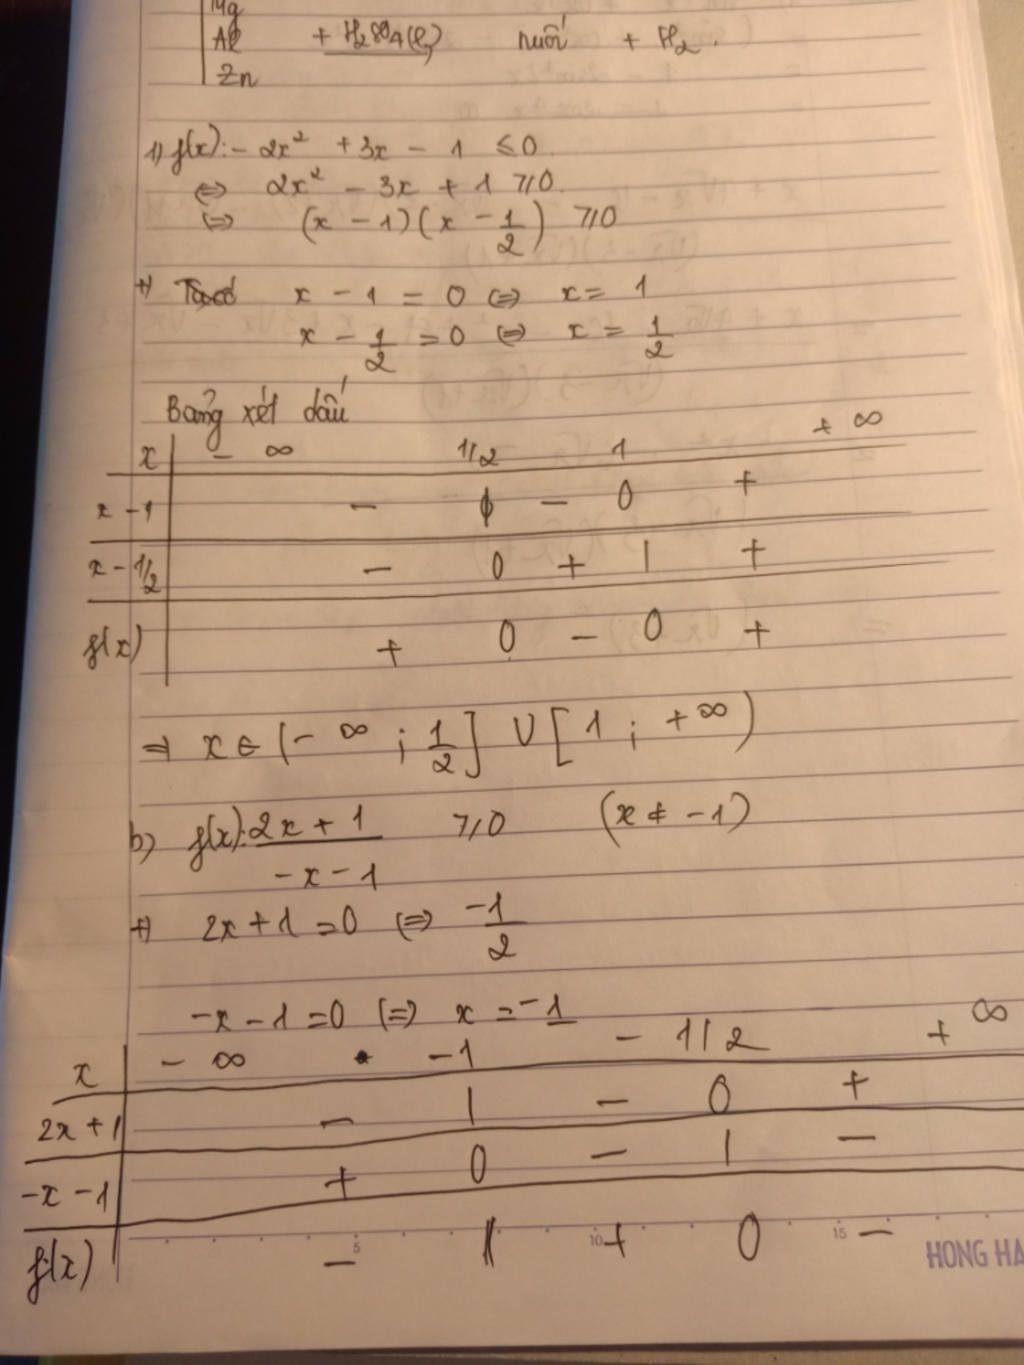 Mg
Al + H2SO4(l) muối + H2.
Zn
1) f(x): - 2x² + 3x - 1 ≤ 0
⇔ 2x² - 3x + 1 ≥ 0
⇔ (x - 1)(x - 1/2) ≥ 0
+) x - 1 = 0 ⇔ x = 1
x - 1/2 = 0 ⇔ x = 1/2
Bảng xét dấu
x - ∞ 1/2 1 + ∞
x - 1 - | - 0 +
x - 1/2 - 0 + | +
f(x) + 0 - 0 +
⇒ x ∈ (- ∞ ; 1/2] ∪ [1 ; + ∞)
b) f(x): 2x + 1 / -x - 1 ≥ 0 (x ≠ -1)
+) 2x + 1 = 0 ⇔ -1/2
-x - 1 = 0 ⇔ x = -1
x - ∞ -1 - 1/2 + ∞
2x + 1 - | - 0 +
-x - 1 + 0 - | -
f(x) - || + 0 -
5 10 15 HONG HA